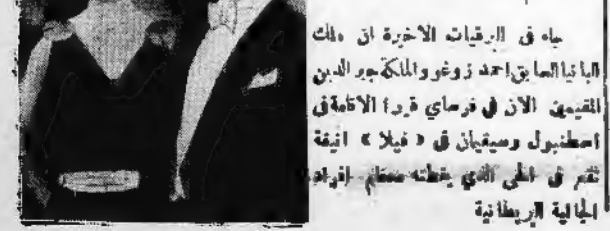 جاء في البرقيات الاخيرة ان ملك
البانيا السابق احمد زوغو والملكة جير الدين
المقيمين الان في فرساي قررا الاقامة في
اسطنبول وسيقيمان في « فيلا » انيقة
تقع في الحي الذي يقطنه معظم افراد
الجالية البريطانية